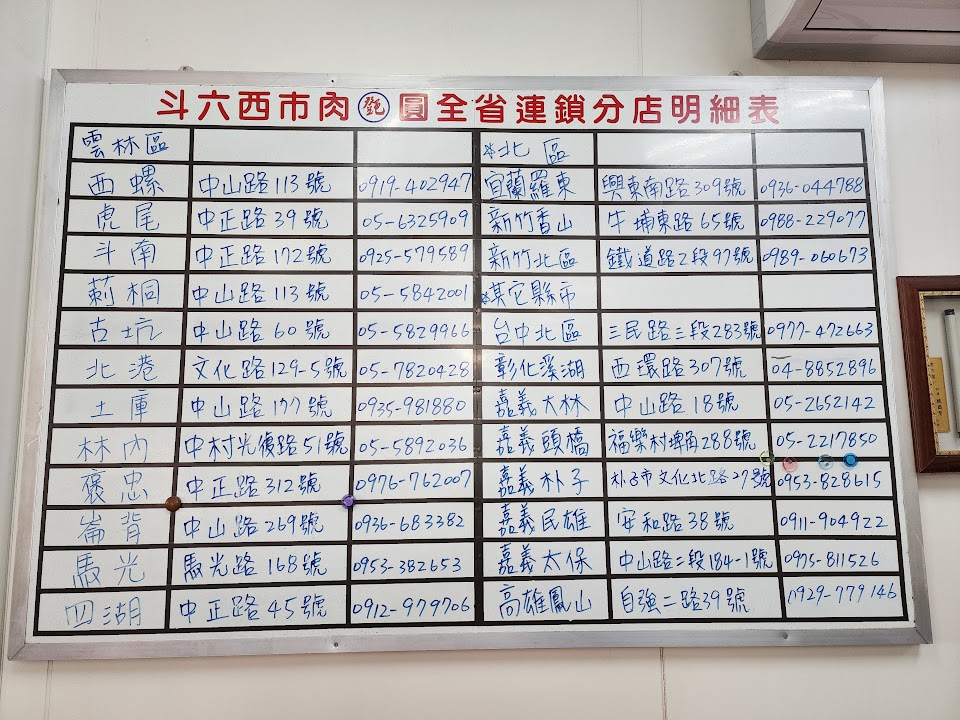 斗六西市肉圓全省連鎖分店明細表
雲林區
西螺 中山路113號 0919-402947
虎尾 中正路39號 05-6325909
斗南 中正路172號 0925-579589
莿桐 中山路113號 05-5842001
古坑 中山路60號 05-5829966
北港 文化路129-5號 05-7820428
土庫 中山路177號 0935-981880
林內 中村光復路51號 05-5892036
褒忠 中正路312號 0976-762007
崙背 中山路269號 0936-683382
馬光 馬光路168號 0953-382653
四湖 中正路45號 0912-979706
*北區
宜蘭羅東 興東南路309號 0936-044788
新竹香山 牛埔東路65號 0988-229077
新竹北區 鐵道路2段97號 0989-060673
*其它縣市
台中北區 三民路三段283號 0977-472663
彰化溪湖 西環路307號 04-8852896
嘉義大林 中山路18號 05-2652142
嘉義頭橋 福樂村埤角288號 05-2217850
嘉義朴子 朴子市文化北路27號 0953-828615
嘉義民雄 安和路38號 0911-904922
嘉義太保 中山路二段184-1號 0975-811526
高雄鳳山 自強二路39號 0929-779146